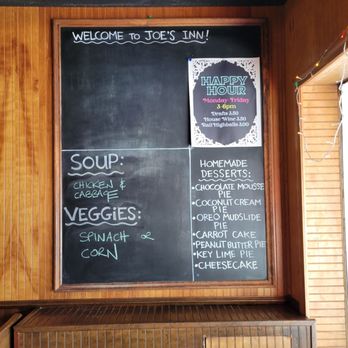 WELCOME TO JOE'S INN!
HAPPY
HOUR
Monday Friday
3-6pm
Drafts 3.50
House Wine 3.50
Rail Highballs 3.00
SOUP:
CHICKEN &
CABBAGE
VEGGIES:
SPINACH OR
CORN
HOMEMADE
DESSERTS:
•CHOCOLATE MOUSSE
PIE
•COCONUT CREAM
PIE
•OREO MUDSLIDE
PIE
•CARROT CAKE
•PEANUT BUTTER PIE
•KEY LIME PIE
•CHEESECAKE